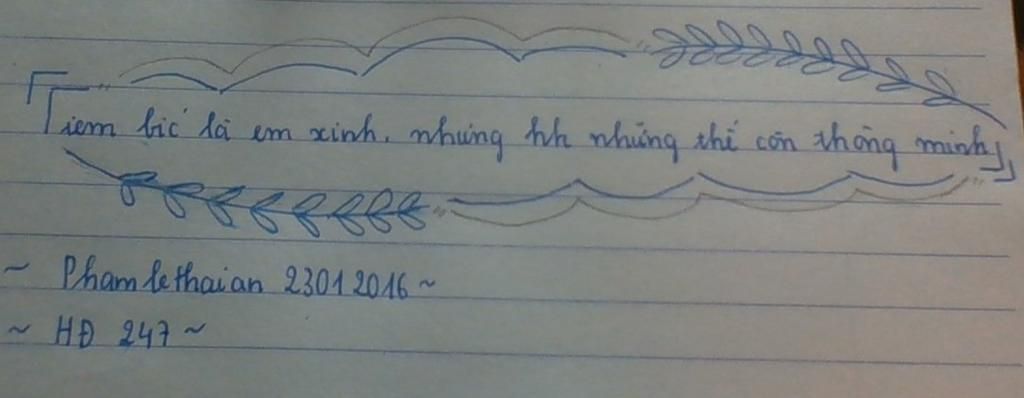 「「iem bíc là em xinh. nhưng hh những thế còn thông minh」」
~ Phamlethaian 23012016 ~
~ HĐ 247 ~